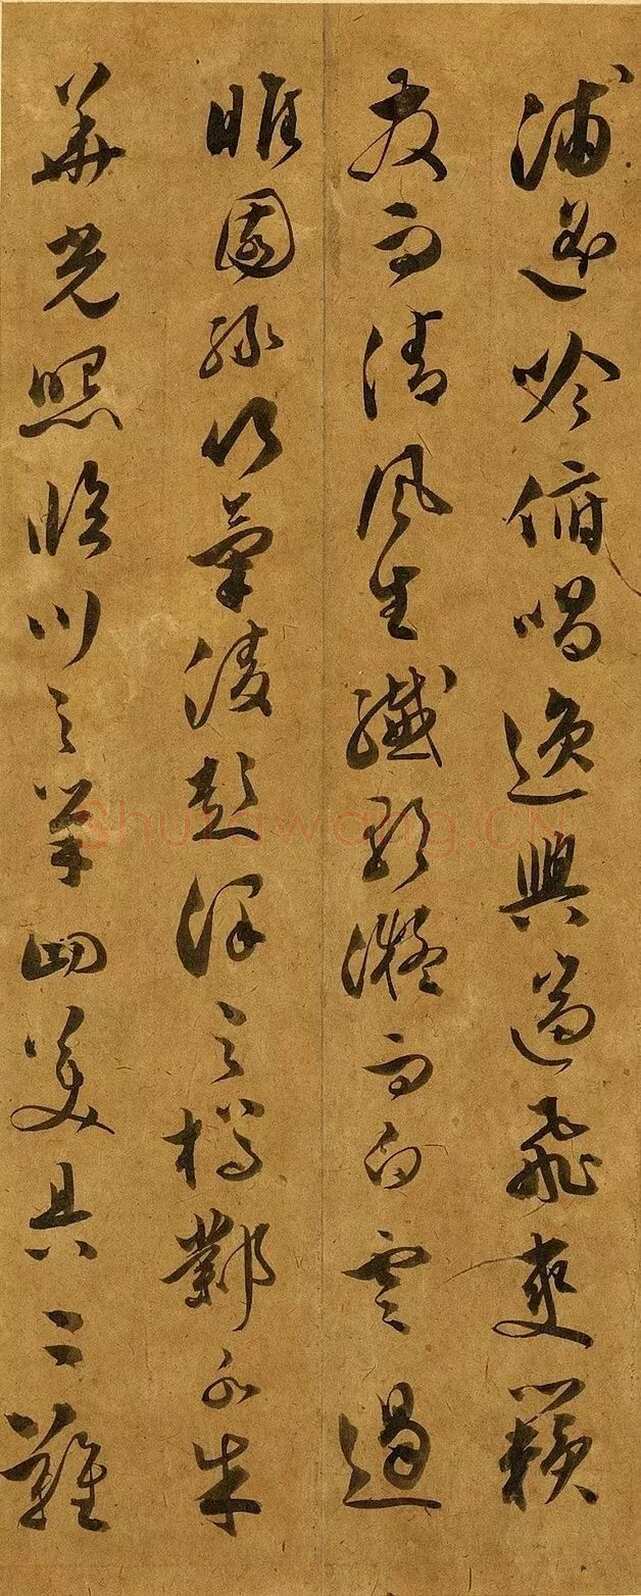 浦遥吟俯唱逸興遄飛爽籟
發而清風生纖歌凝而白雲遏
睢園綠竹氣凌彭澤之樽鄴水朱
華光照臨川之筆四美具二難
Shufawang.CN